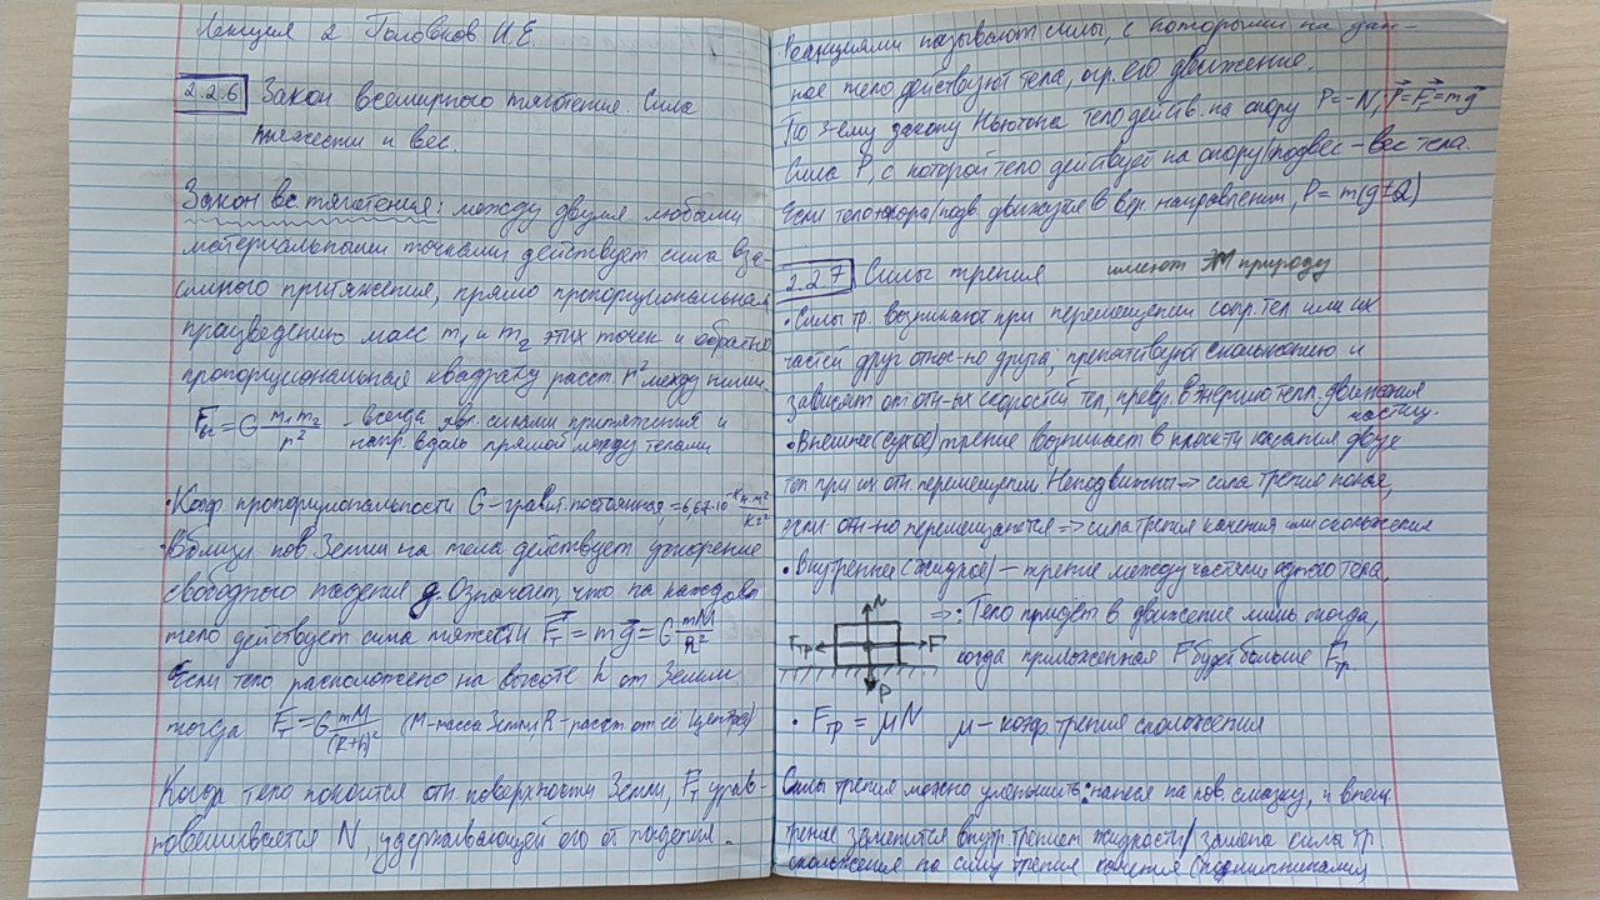 Лекция 2 Головков И.Е.
2.2.6 Закон всемирного тяготения. Сила
тяжести и вес.
Закон вс. тяготения: между двумя любыми
материальными точками действует сила вза-
имного притяжения, прямо пропорциональная
произведению масс m₁ и m₂ этих точек и обратно
пропорциональная квадрату расст. r² между ними.
F = G m₁m₂/r² - всегда явл. силами притяжения и
напр. вдоль прямой между телами
• Коэф. пропорциональности G - гравит. постоянная, = 6,67·10 н·м²/кг²
• Вблизи пов. Земли на тела действует ускорение
свободного падения g. Означает, что на каждое
тело действует сила тяжести F⃗т = mg⃗ = G mM/R²
Если тело расположено на высоте h от Земли
тогда Fт = G mM/(R+h)² (M-масса Земли, R-расст. от её центра)
Когда тело покоится отн. поверхности Земли, Fт урав-
новешивается N, удерживающей его от падения.
Реакциями называют силы, с которыми на дан-
ное тело действуют тела, огр. его движение.
По 3-ему закону Ньютона тело действ. на опору P=-N, P⃗=F⃗т=mg⃗
Сила P, с которой тело действует на опору/подвес - вес тела.
Если тело+опора/подв. движутся в вер. направлении, P = m(g±a)
2.2.7 Силы трения имеют ЭМ природу
• Силы тр. возникают при перемещении сопр. тел или их
частей друг относ-но друга; препятствуют скольжению и
зависят от отн-ых скоростей тел, превр. в энергию тепл. движения
частиц.
• Внешнее (сухое) трение возникает в плоск-ти касания двух
тел при их отн. перемещении. Неподвижны => сила трения покоя,
если отн-но перемещаются => сила трения качения или скольжения
• Внутреннее (жидкое) - трение между частями одного тела.
N
Fтр F
P
=>: Тело придёт в движение лишь тогда,
когда приложенная F будет больше Fтр.
• Fтр = μN μ - коэф. трения скольжения
Силы трения можно уменьшить: нанеся на пов. смазку, и внеш.
трение заменится внутр. трением жидкости / замена силы тр.
скольжения на силу трения качения (подшипниками)